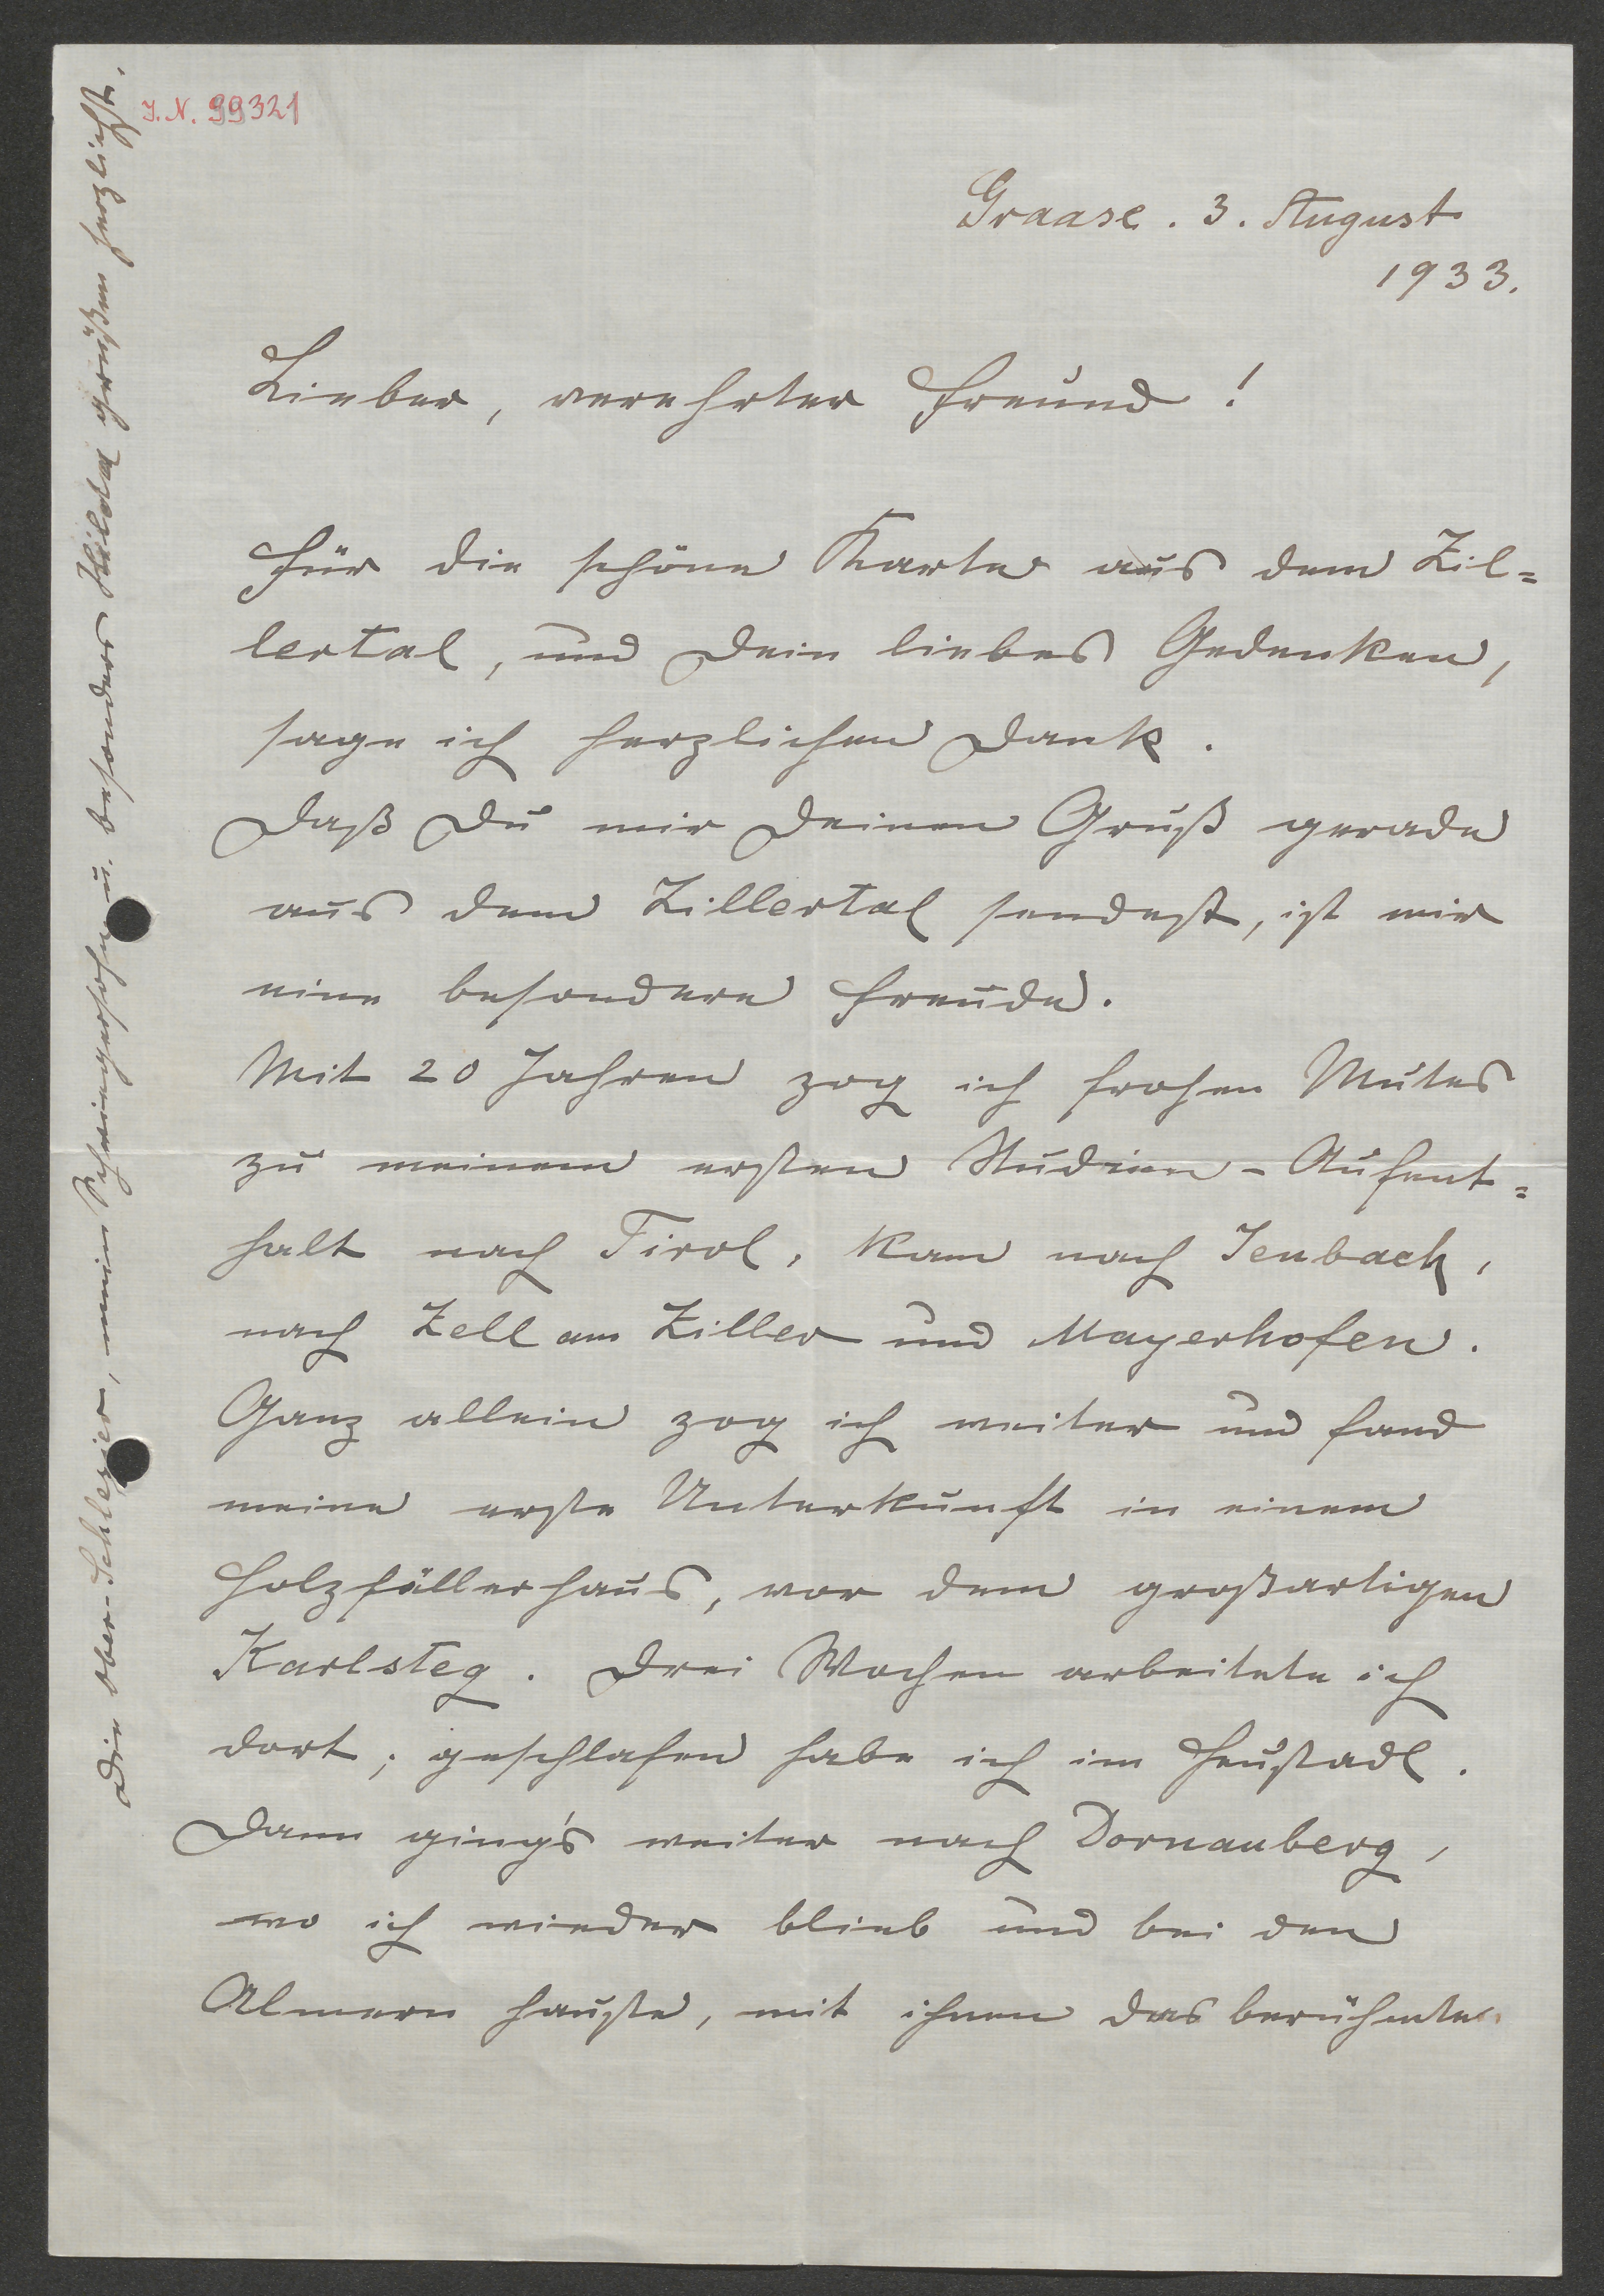 J. N. 99321
Graase. 3. August
1933.
Lieber, verehrter Freund!
Für die schöne Karte aus dem Zil=
lertal, und Dein liebes Gedenken,
sage ich herzlichen Dank.
Daß Du mir Deinen Gruß gerade
aus dem Zillertal sendest, ist mir
eine besondere Freude.
Mit 20 Jahren zog ich frohen Mutes
zu meinem ersten Studien-Aufent=
halt nach Tirol, kam nach Jenbach,
nach Zell am Ziller und Mayerhofen.
Ganz allein zog ich weiter und fand
meine erste Unterkunft in einem
Holzfällerhaus, vor dem großartigen
Karlsteg. Drei Wochen arbeitete ich
dort; geschlafen habe ich im Heustadl.
Dann ging's weiter nach Dornauberg,
wo ich wieder blieb und bei den
Almern hauste, mit ihnen das berühmte
Die Ober-Schlesier, meine Schwiegersöhne u. besonders Hilda grüßen herzlichst.